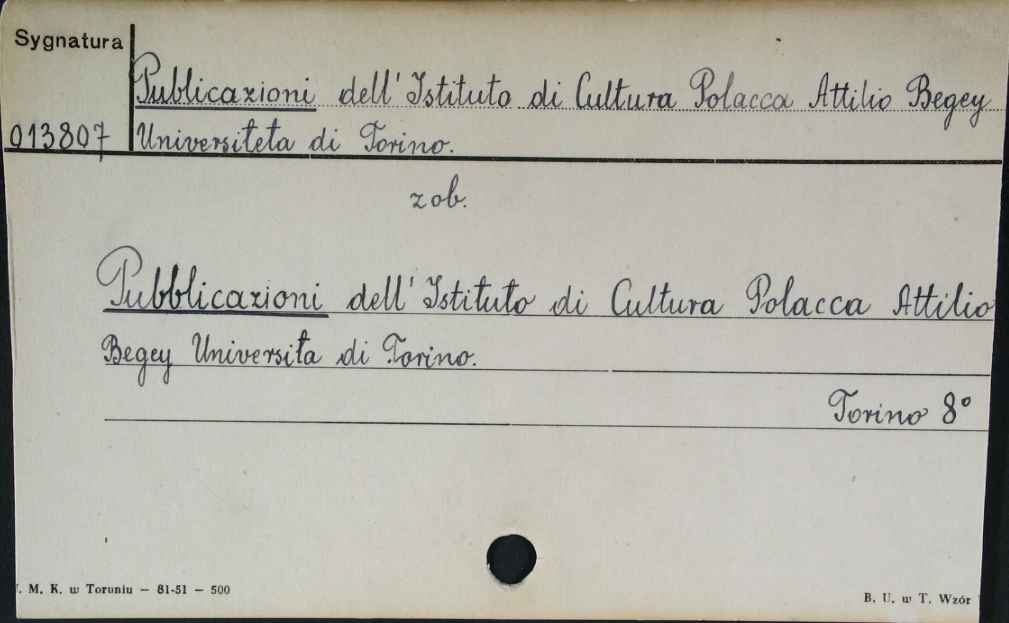 Sygnatura
Publicazioni dell' Istituto di Cultura Polacca Attilio Begey
013807 Universiteta di Torino.
zob.
Pubblicazioni dell' Istituto di Cultura Polacca Attilio
Begey Universita di Torino.
Torino 8°
. M. K. w Toruniu — 81-51 — 500
B. U. w T. Wzór